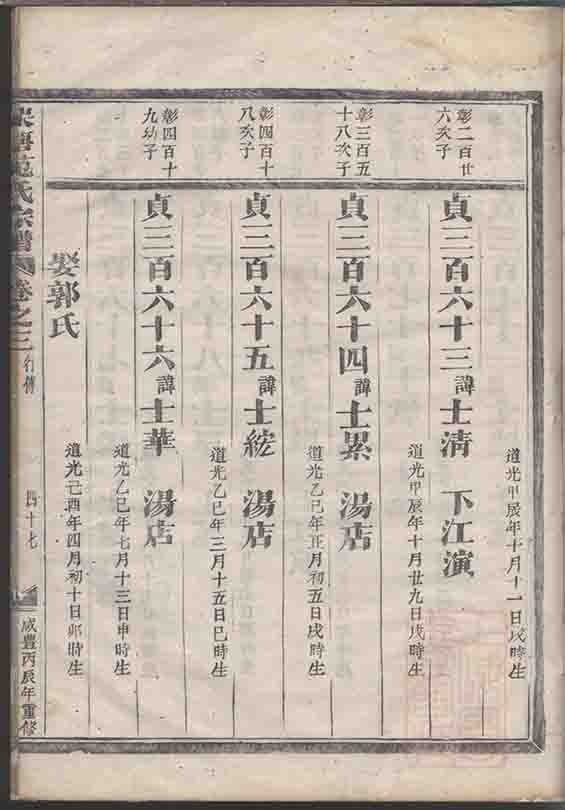 道光甲辰年十月十一日戌時生
彰二百廿
六次子
貞三百六十三諱士清 下江演
道光甲辰年十月廿九日戌時生
彰三百五
十八次子
貞三百六十四諱士累 湯店
道光乙巳年正月初五日戌時生
彰四百十
八次子
貞三百六十五諱士綋 湯店
道光乙巳年三月十五日巳時生
彰四百十
九幼子
貞三百六十六諱士華 湯店
道光乙巳年七月十三日申時生
娶郭氏
道光己酉年四月初十日卯時生
范氏宗譜 卷之三 行傳 四十七 咸豐丙辰年重修